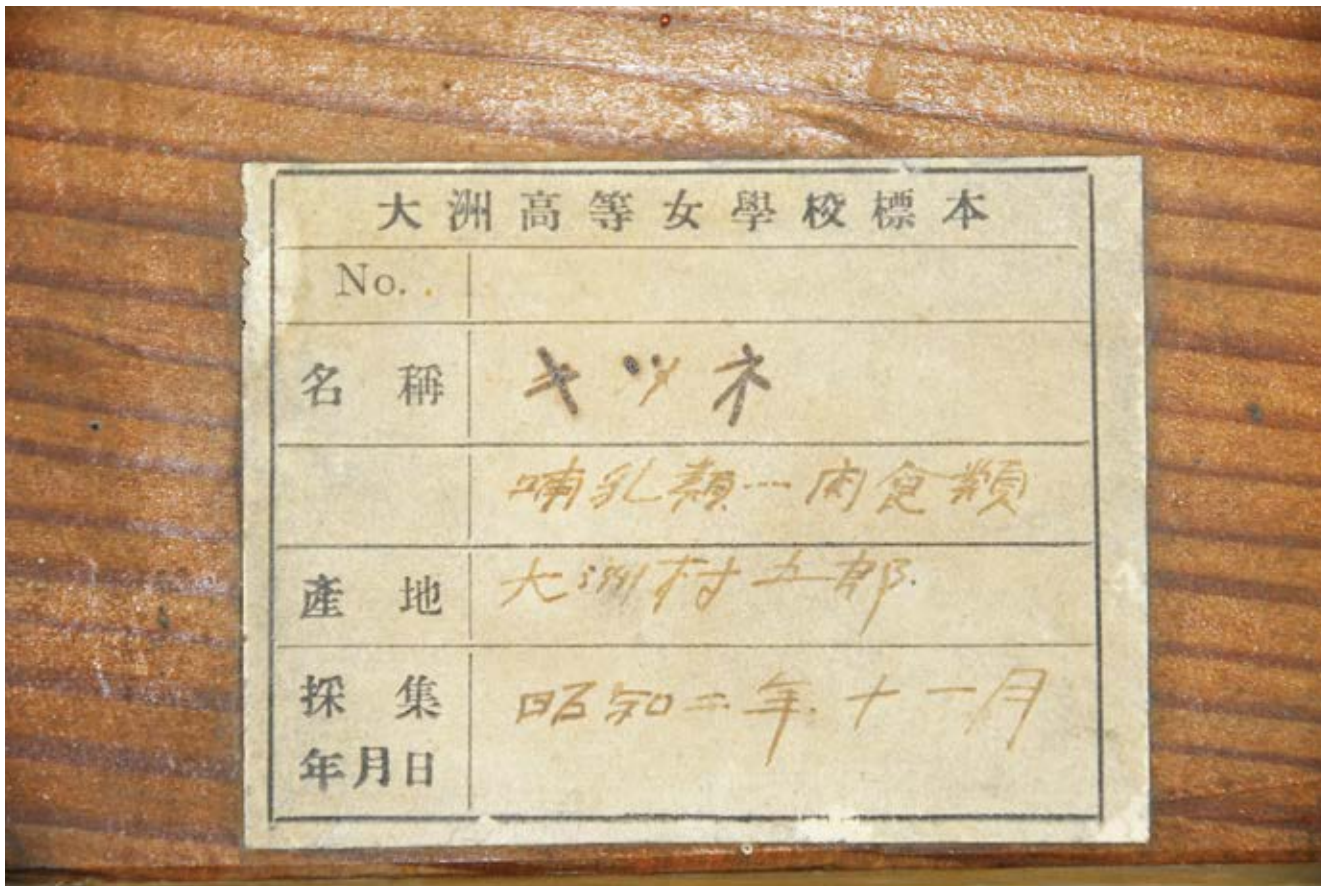 大洲高等女學校標本
No.
名稱 キツネ
哺乳類…肉食類
產地 大洲村五郎.
採集
年月日 昭和二年.十一月